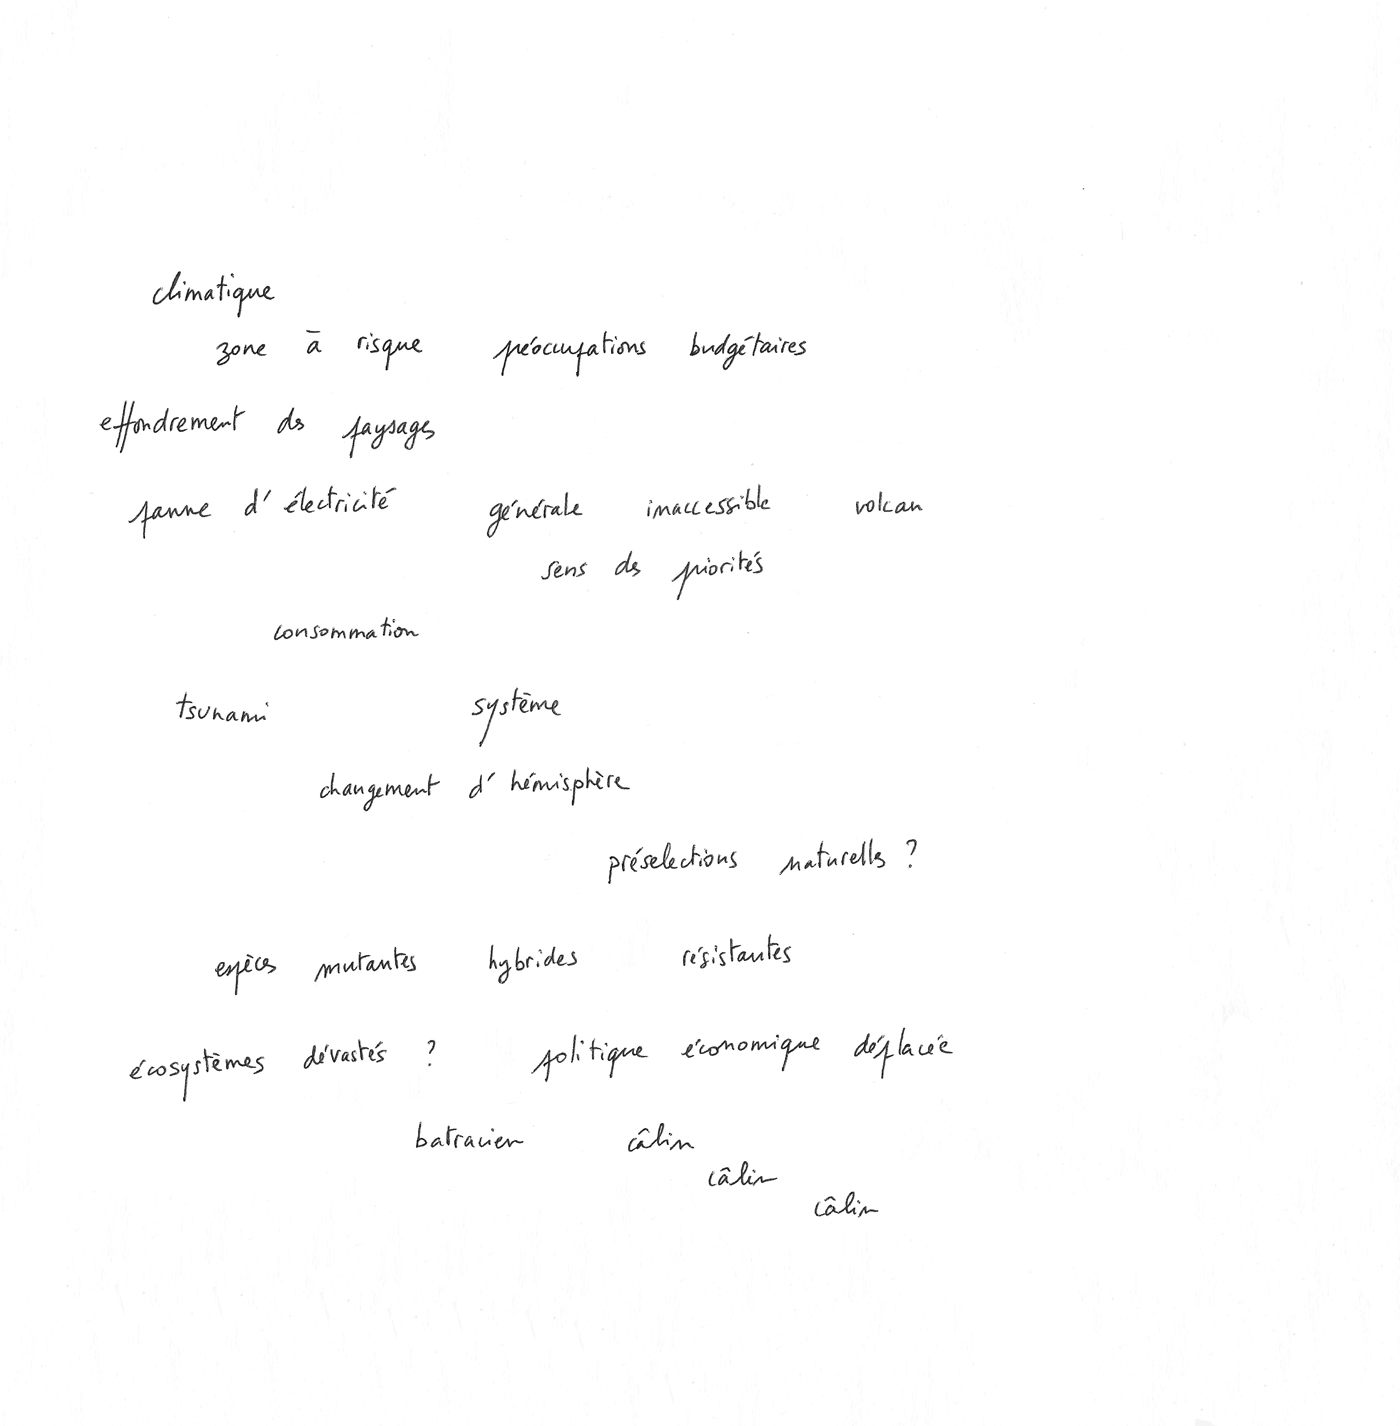 climatique
zone à risque préoccupations budgétaires
effondrement des paysages
panne d'électricité générale inaccessible volcan
sens des priorités
consommation
tsunami système
changement d'hémisphère
préselections naturelles ?
espèces mutantes hybrides résistantes
écosystèmes dévastés ? politique économique déplacée
batracien câlin
câlin
câlin